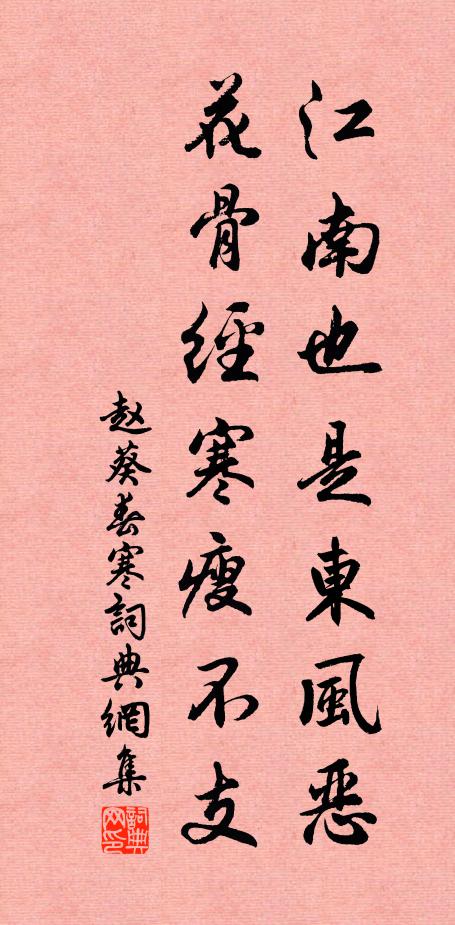 江南也是東風惡
花骨經寒瘦不支
赵葵春寒詞典網集
詞典网印